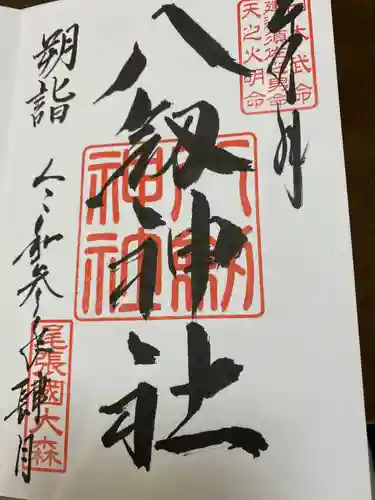 八剱神社
朔詣
令和参年肆月
尾張國大森
八剱神社
日本武命
建速須佐之男命
天之火明命